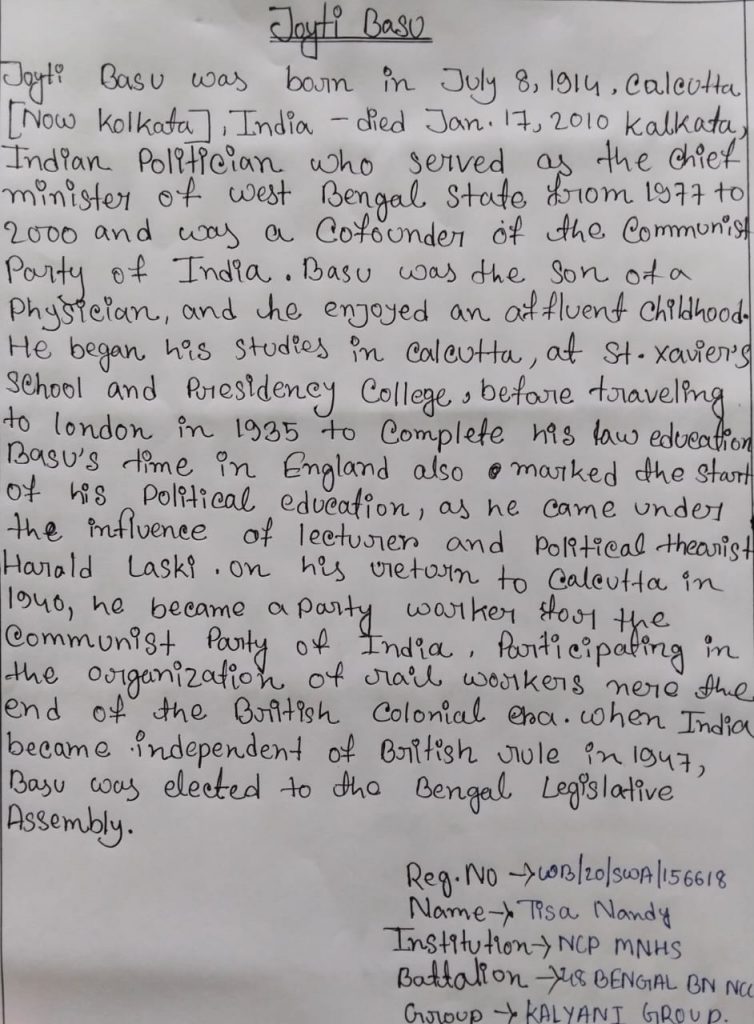 Joyti Basu
Joyti Basu was born in July 8, 1914, Calcutta
[Now Kolkata], India - died Jan. 17, 2010 Kalkata,
Indian Politician who served as the chief
minister of west Bengal State from 1977 to
2000 and was a Cofounder of the Communist
Party of India. Basu was the Son of a
Physician, and he enjoyed an affluent Childhood.
He began his studies in Calcutta, at St. xavier's
School and Presidency College, before traveling
to london in 1935 to Complete his law education
Basu's time in England also marked the start
of his Political education, as he came under
the influence of lecturer and Political thearist
Harald Laski. on his return to Calcutta in
1940, he became a party worker for the
Communist Party of India, Participating in
the oorganization of rail workers nere the
end of the British Colonial era. when India
became independent of British rule in 1947,
Basu was elected to the Bengal Legislative
Assembly.
Reg. No → WB/20/SWA/156618
Name → Tisa Nandy
Institution → NCP MNHS
Battalion → 48 BENGAL BN NCC
Group → KALYANI GROUP.